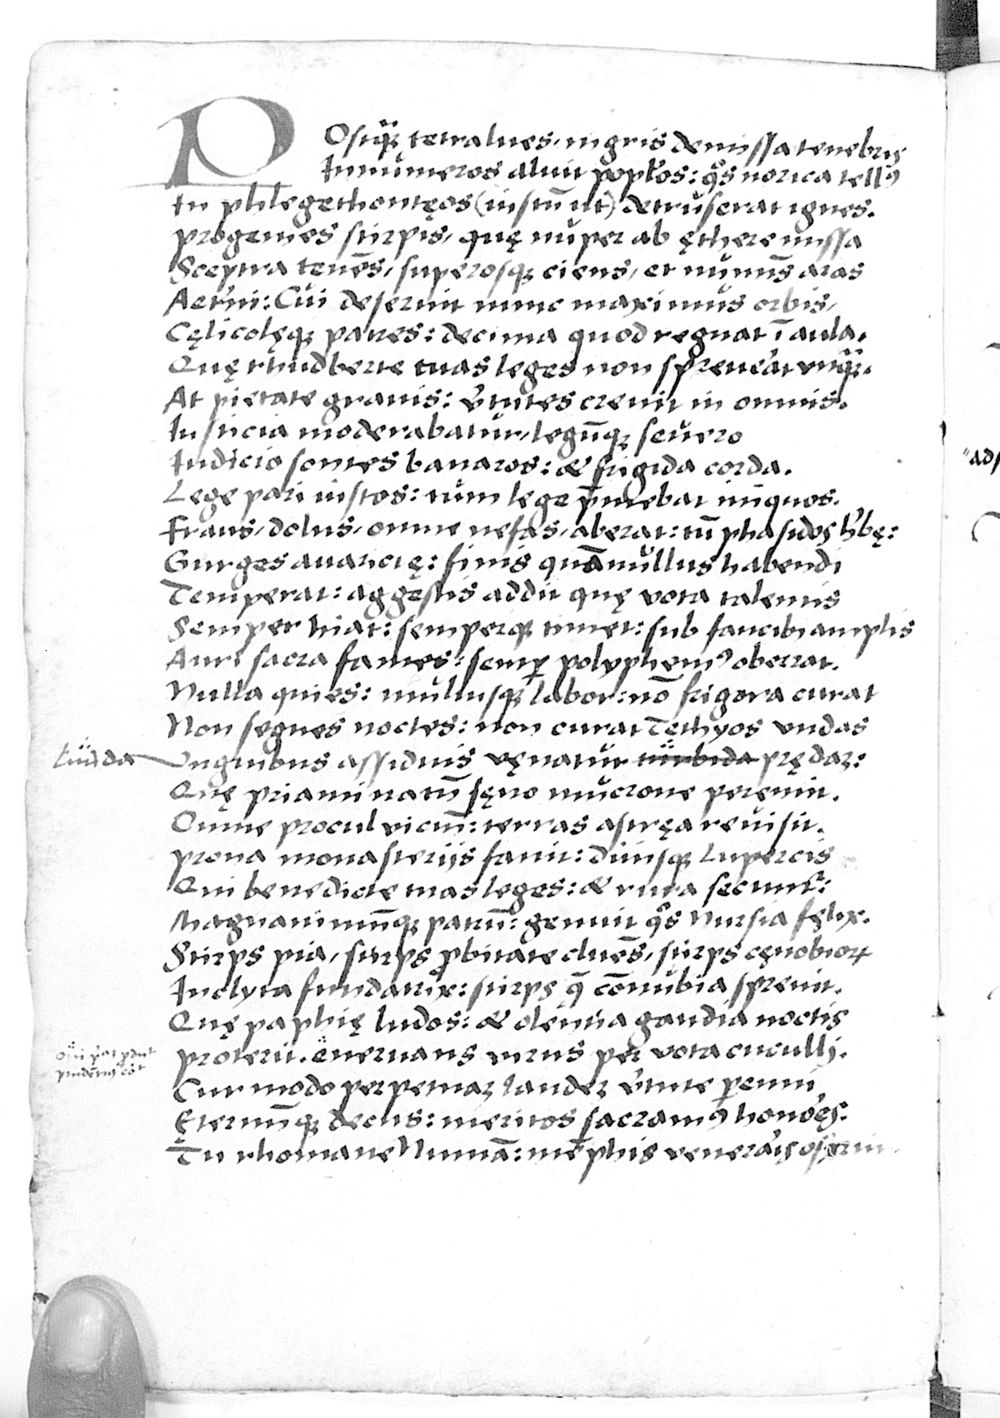 POstq̃ tetra lues, nigris demissa tenebris
Innumeros aluit pop̃los: q̃s norica tellꝰ
In phlegethontęos (iustũ ut) detruserat ignes.
progenies stirpis, quę nuper ab ęthere missa
Sceptra tenẽs, superosqꝫ ciens, et numĩs aras
Aetr̃ni: Cui deseruit nunc maximus orbis,
Cęlicolęqꝫ patres: decima quod regnat ĩ aula.
Quę rhudberte tuas leges non spreuerat vnq̃.
At pietate grauis: v̓tutes creuit in omnis.
Iusticia moderabatur, legũqꝫ seuero
Iudicio sontes bauaros: & frigida corda.
Lege pari iustos: tum lege p̃mebat iniquos.
Fraus, dolus, omne nefas, aberat: tũ phasidos h̓bę:
Gurges auarıcię: finis quã nullus habendi
Temperat: aggestis addit quę vota talentis
Semper hiat: semperqꝫ timet: sub faucibꝰ amplis
Auri sacra fames: semꝑ polyphemꝰ oberrat.
Nulla quies: multusqꝫ labor: nõ frigora curat
Non segnes noctes: non curat Tethyos vndas
Liuida
Vnguibus assiduis vęnatur turbida prędaꝫ:
Quę priami natũ sęuo mucrone peremit.
Omne procul viciũ: terras astręa reuisit.
prona monasterijs fauit: diuisqꝫ Lupercis
Qui benedicte tuas leges: & iura secunt̃:
Magnanimũqꝫ patrũ: genuit q̃s Nursia fęlix.
Stirps pia, stirps ꝓbitate cluẽs, stirps cęnobioꝝ
Inclyta fundatrix: stirps q̃ cõnubia spreuit.
Quę paphię ludos: & olentia gaudia noctis
proterit. eneruans virus per vota cuculli.
Cur modo perpetuaꝫ laudeꝫ v̓tute perenni
Ęternũqꝫ decus: meritos sacramꝰ honores.
Tu rhomane Numã: memphis veneraris